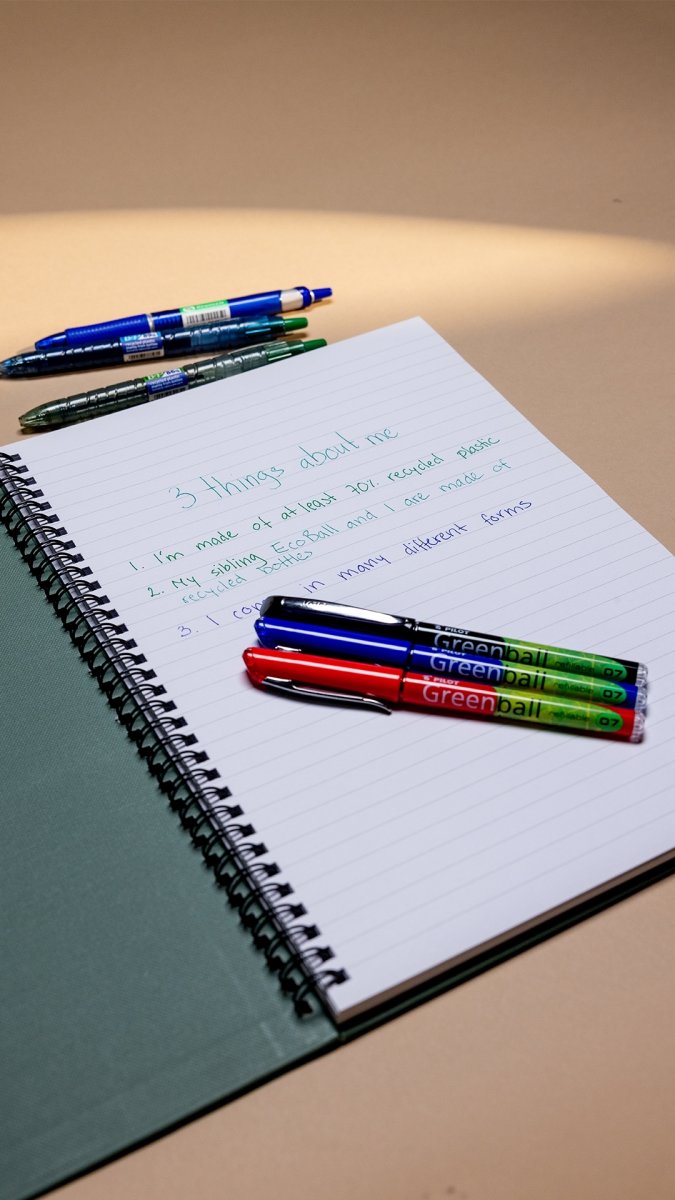 3 things about me
1. I'm made of at least 70% recycled plastic
2. My sibling EcoBall and I are made of
recycled bottles
3. I in many different forms
PILOT
Greenball refillable 07
PILOT
Greenball refillable 07
PILOT
Greenball refillable 07